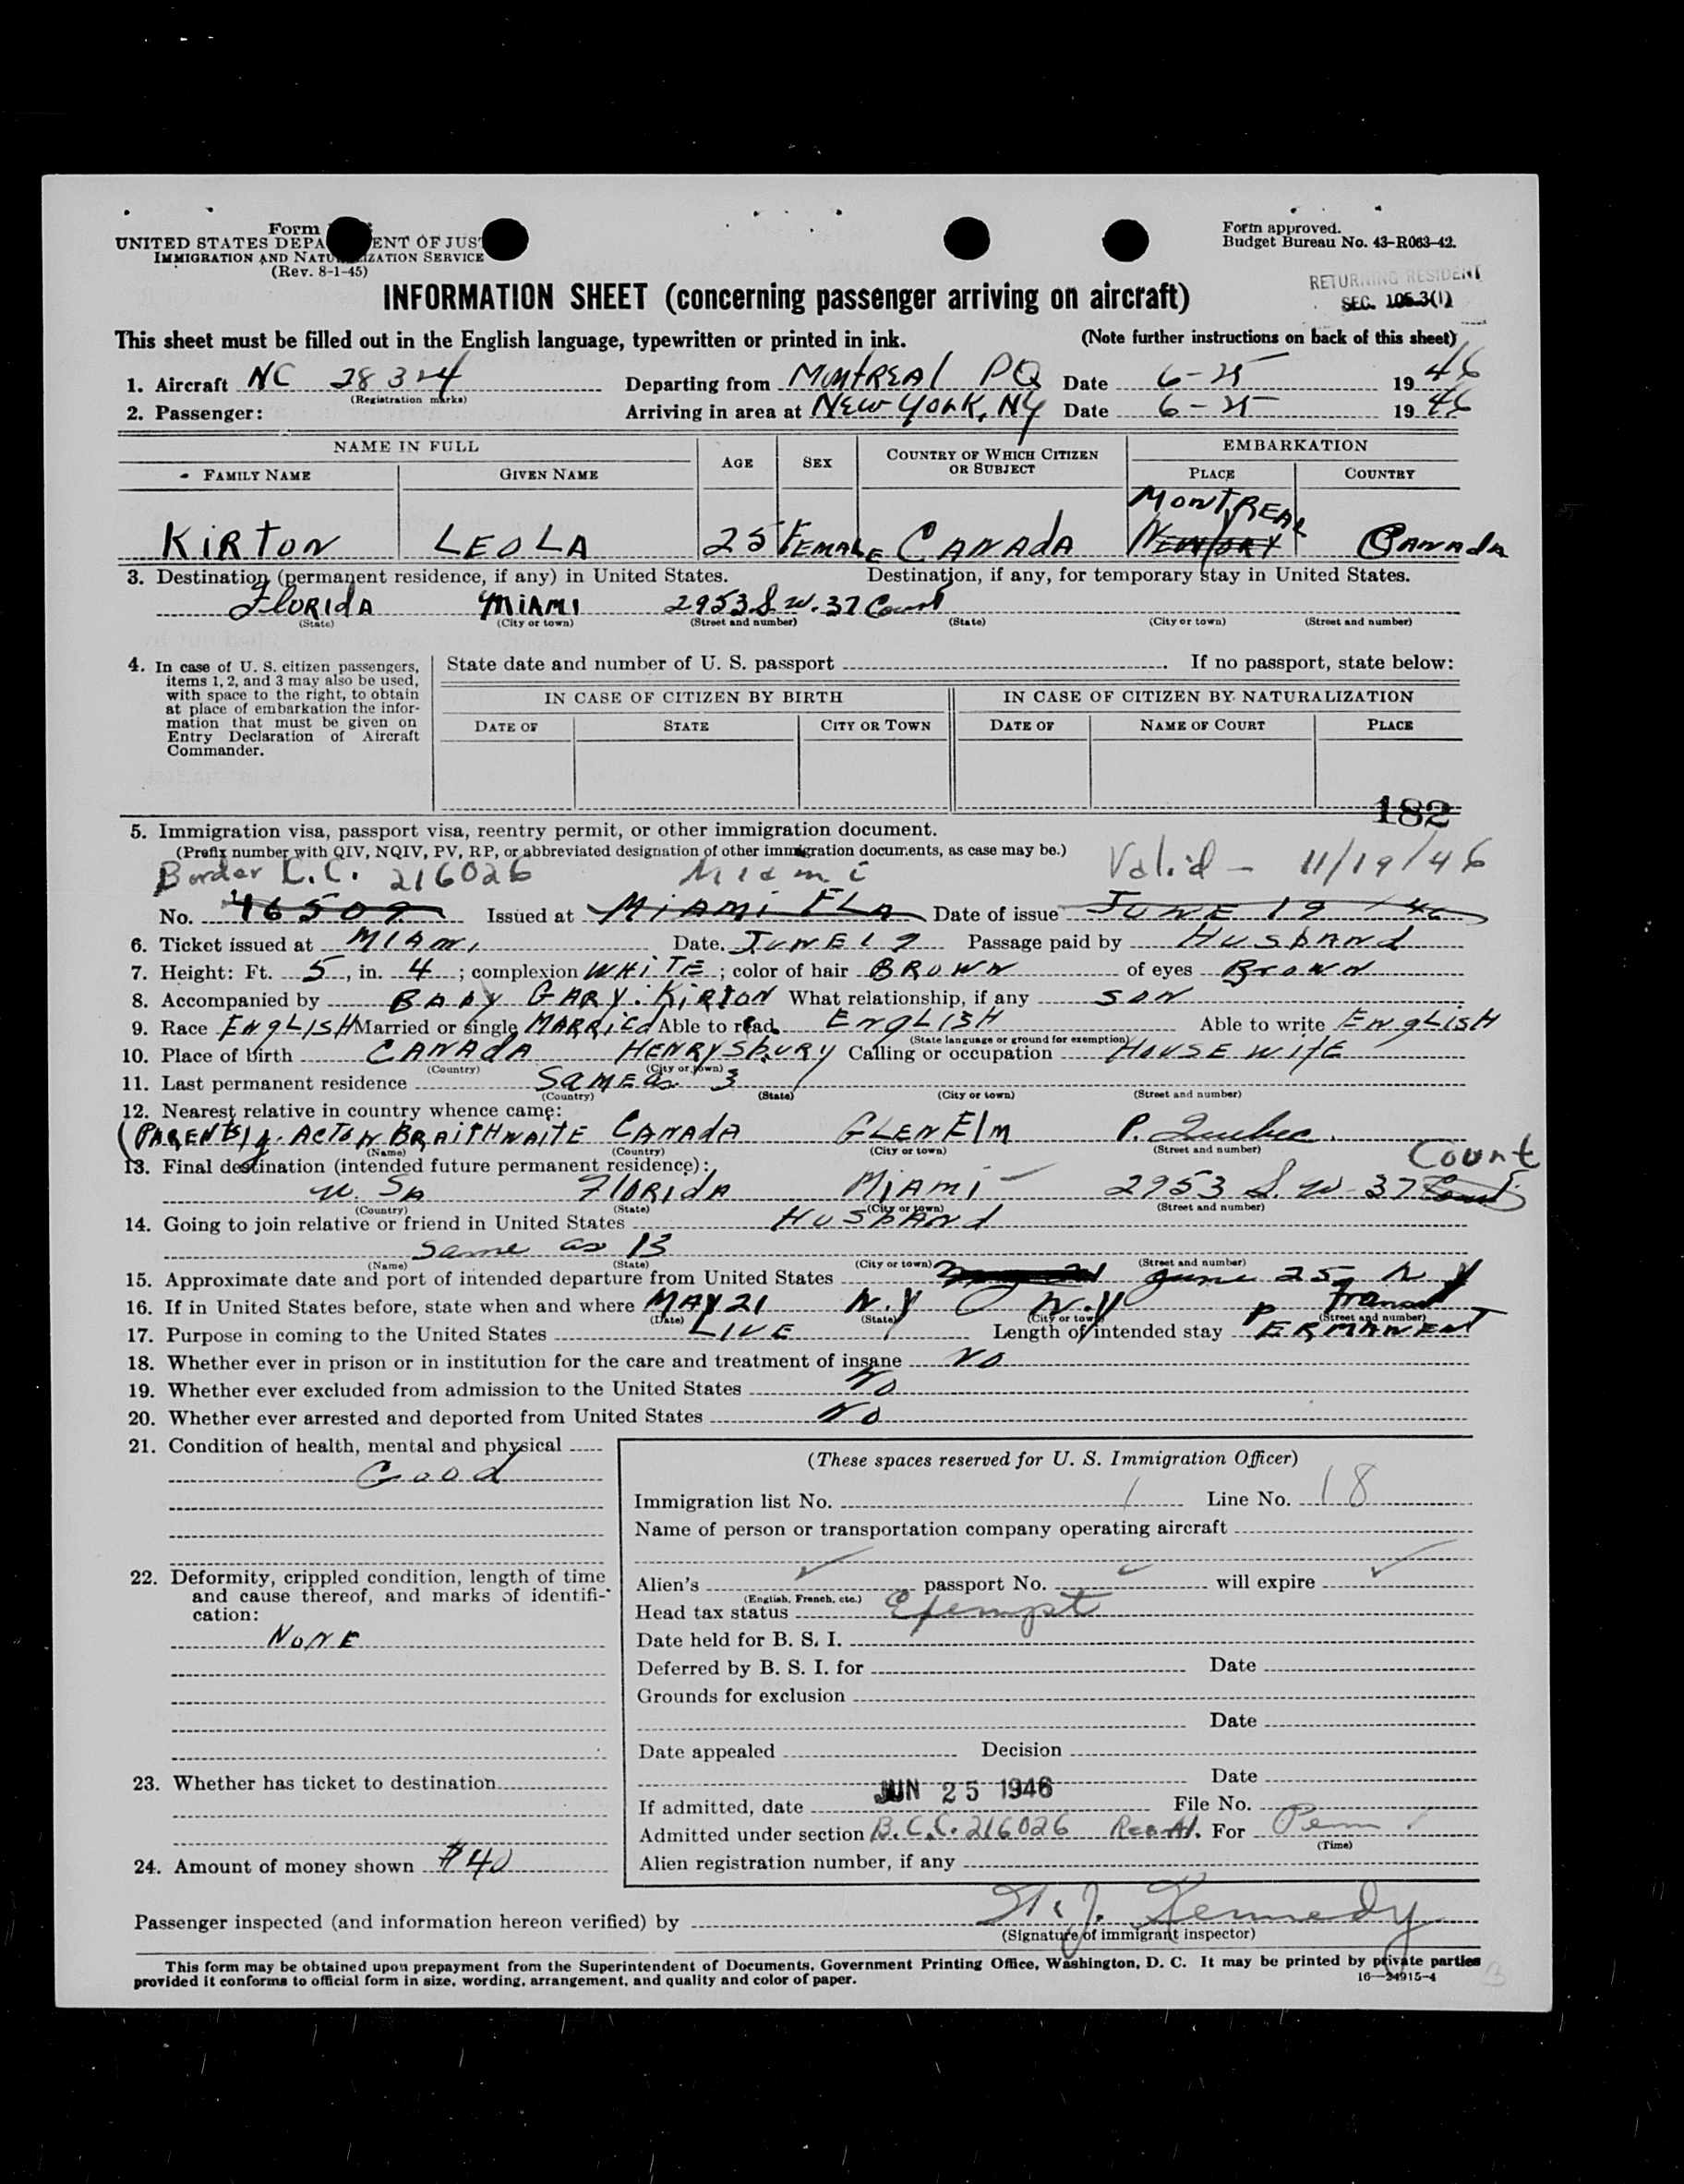 Form
UNITED STATES DEPA ENT OF JUS
IMMIGRATION AND NATU IZATION SERVICE
(Rev. 8-1-45)
Form approved.
Budget Bureau No. 43-R063-42.
RETURNING RESIDENT
SEC. 105.3(1)
INFORMATION SHEET (concerning passenger arriving on aircraft)
This sheet must be filled out in the English language, typewritten or printed in ink. (Note further instructions on back of this sheet)
1. Aircraft NC 28324 Departing from MONTREAL PQ Date 6-25 1946
(Registration marks)
2. Passenger: Arriving in area at NEW YORK, NY Date 6-25 1946
NAME IN FULL AGE SEX COUNTRY OF WHICH CITIZEN OR SUBJECT EMBARKATION
FAMILY NAME GIVEN NAME PLACE COUNTRY
MONTREAL
KIRTON LEOLA 25 FEMALE CANADA CANADA
3. Destination (permanent residence, if any) in United States. Destination, if any, for temporary stay in United States.
FLORIDA MIAMI 2953 S.W. 37 Court
(State) (City or town) (Street and number) (State) (City or town) (Street and number)
4. In case of U. S. citizen passengers, items 1, 2, and 3 may also be used, with space to the right, to obtain at place of embarkation the information that must be given on Entry Declaration of Aircraft Commander.
State date and number of U. S. passport . If no passport, state below:
IN CASE OF CITIZEN BY BIRTH IN CASE OF CITIZEN BY NATURALIZATION
DATE OF STATE CITY OR TOWN DATE OF NAME OF COURT PLACE
182
5. Immigration visa, passport visa, reentry permit, or other immigration document.
(Prefix number with QIV, NQIV, PV, RP, or abbreviated designation of other immigration documents, as case may be.)
Border C.C. 216026 Miami Valid - 11/19/46
No. 46509 Issued at MIAMI FLA Date of issue JUNE 19 46
6. Ticket issued at MIAMI Date. JUNE 19 Passage paid by HUSBAND
7. Height: Ft. 5, in. 4; complexion WHITE; color of hair BROWN of eyes BROWN
8. Accompanied by BABY GARY. KIRTON What relationship, if any SON
9. Race ENGLISH Married or single MARRIED Able to read ENGLISH Able to write ENGLISH
(State language or ground for exemption)
10. Place of birth CANADA HENRYSBURY Calling or occupation HOUSE WIFE
(Country) (City or town)
11. Last permanent residence SAME as 3
(Country) (State) (City or town) (Street and number)
12. Nearest relative in country whence came:
(PARENTS) J. ACTON BRAITHWAITE CANADA GLEN ELM P. Quebec.
(Name) (Country) (City or town) (Street and number)
13. Final destination (intended future permanent residence): Count
U. SA FLORIDA MIAMI 2953 S. W 37 Court
(Country) (State) (City or town) (Street and number)
14. Going to join relative or friend in United States HUSBAND
Same as 13
(Name) (State) (City or town) (Street and number)
15. Approximate date and port of intended departure from United States June 25, N Y
16. If in United States before, state when and where MAY 21 N.Y N.Y Transit
(Date) (State) (City or town) (Street and number)
17. Purpose in coming to the United States LIVE Length of intended stay PERMANENT
18. Whether ever in prison or in institution for the care and treatment of insane NO
19. Whether ever excluded from admission to the United States NO
20. Whether ever arrested and deported from United States NO
21. Condition of health, mental and physical
Good
22. Deformity, crippled condition, length of time and cause thereof, and marks of identification:
NONE
23. Whether has ticket to destination
24. Amount of money shown $40
(These spaces reserved for U. S. Immigration Officer)
Immigration list No. 1 Line No. 18
Name of person or transportation company operating aircraft
Alien's passport No. will expire
(English, French, etc.)
Head tax status Exempt
Date held for B. S. I.
Deferred by B. S. I. for Date
Grounds for exclusion
Date
Date appealed Decision
Date
If admitted, date JUN 25 1946 File No.
Admitted under section B.C.C. 216026 For Perm
(Time)
Alien registration number, if any
Passenger inspected (and information hereon verified) by Kennedy
(Signature of immigrant inspector)
This form may be obtained upon prepayment from the Superintendent of Documents, Government Printing Office, Washington, D. C. It may be printed by private parties
provided it conforms to official form in size, wording, arrangement, and quality and color of paper. 16—24915-4